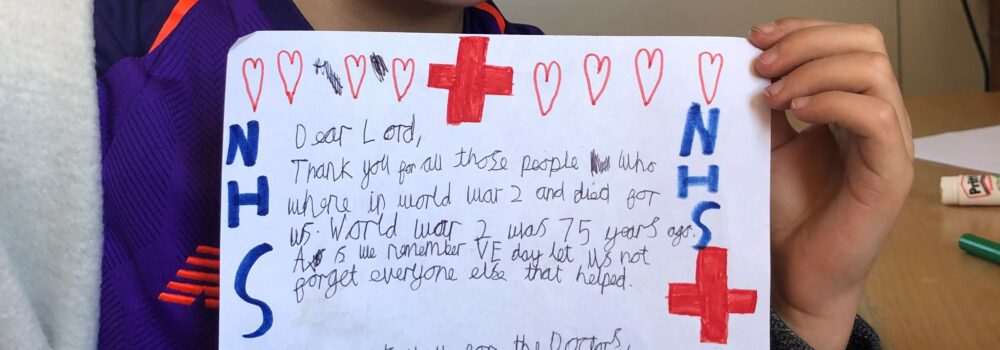 Dear Lord,
Thank you for all those people who
where in world war 2 and died for
us. World war 2 was 75 years ago.
As is we remember VE day let us not
forget everyone else that helped.
for the Doctors,
NHS
NHS
Pritt